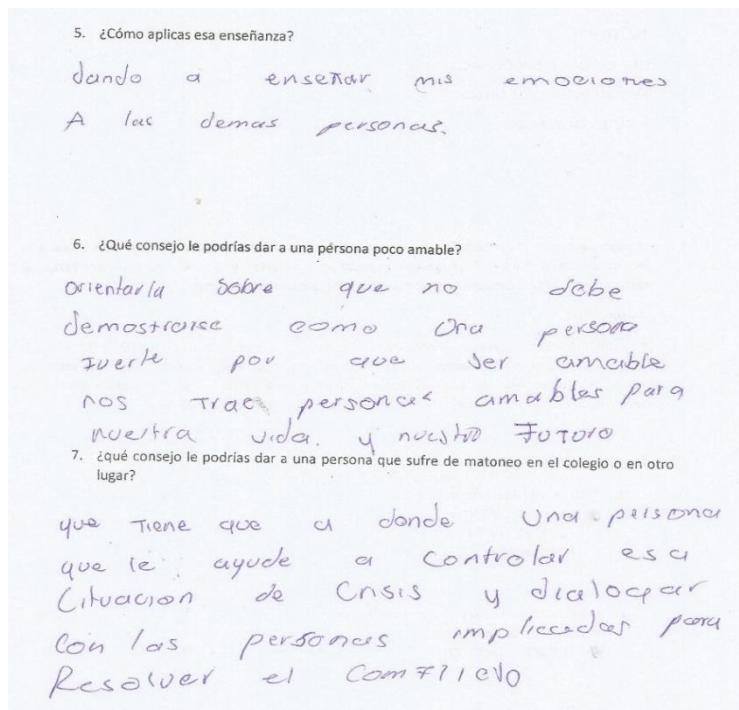 5. ¿Cómo aplicas esa enseñanza?
dando a enseñar mis emociones
A las demas personas.
6. ¿Qué consejo le podrías dar a una persona poco amable?
orientarla sobre que no debe
demostrarse como una persona
Fuerte por que ser amable
nos trae personas amables para
nuestra vida. y nuestro Futuro
7. ¿qué consejo le podrías dar a una persona que sufre de matoneo en el colegio o en otro
lugar?
que Tiene que a donde una persona
que le ayude a controlar esa
Cituacion de Crisis y dialogar
con las personas implicadas para
Resolver el Comflicto